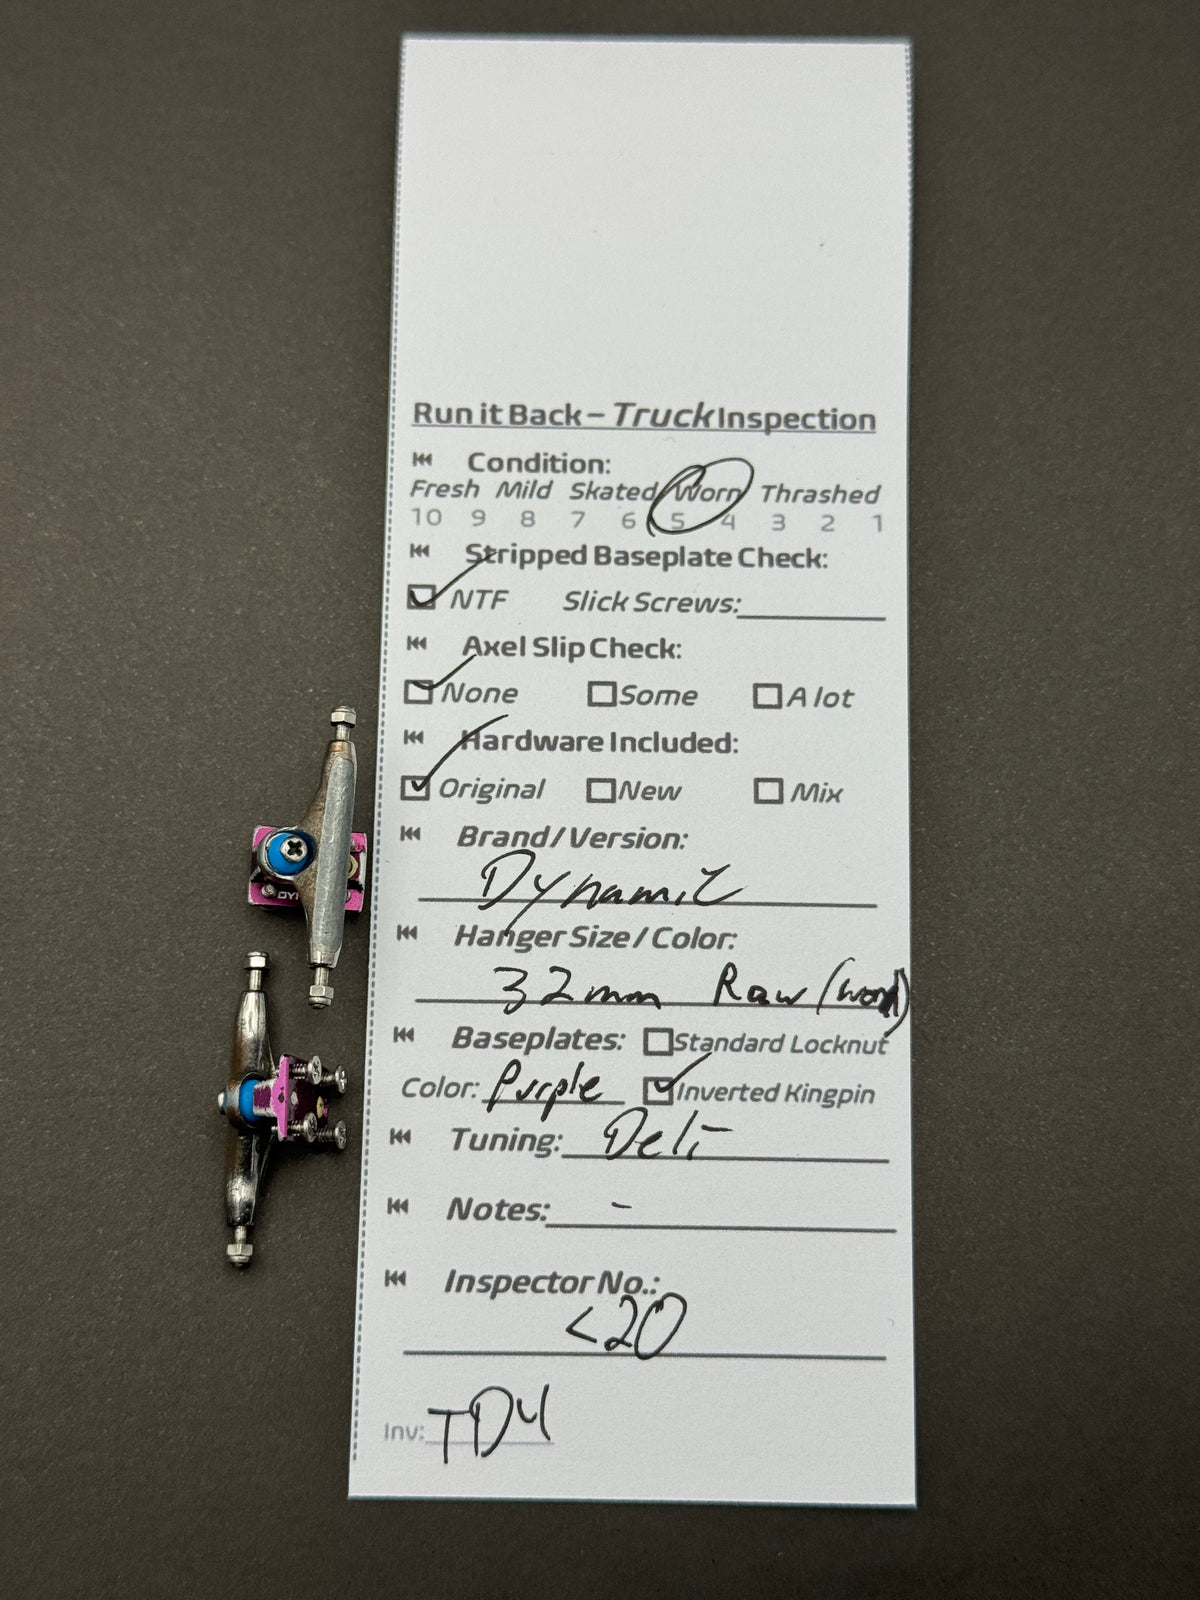 Run it Back – Truck Inspection
Condition:
Fresh Mild Skated Worn Thrashed
10 9 8 7 6 5 4 3 2 1
Stripped Baseplate Check:
NTF Slick Screws:
Axel Slip Check:
None Some A lot
Hardware Included:
Original New Mix
Brand/Version:
Dynamic
Hanger Size/Color:
32mm Raw (worn)
Baseplates: Standard Locknut
Color: Purple Inverted Kingpin
Tuning: Deli
Notes: -
Inspector No.:
<20
Inv: TD4